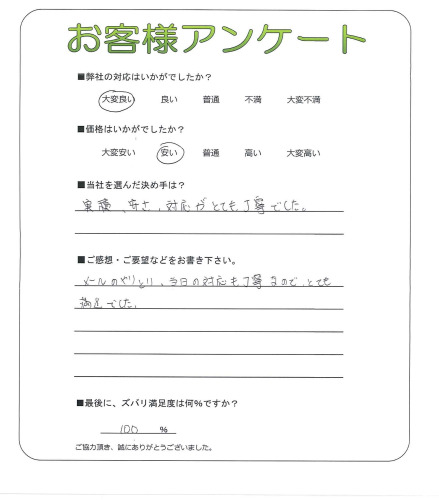 お客様アンケート
■弊社の対応はいかがでしたか？
大変良い 良い 普通 不満 大変不満
■価格はいかがでしたか？
大変安い 安い 普通 高い 大変高い
■当社を選んだ決め手は？
実績、安さ、対応がとても丁寧でした。
■ご感想・ご要望などをお書き下さい。
メールのやりとり、当日の対応も丁寧なので、とても
満足でした。
■最後に、ズバリ満足度は何%ですか？
100 %
ご協力頂き、誠にありがとうございました。